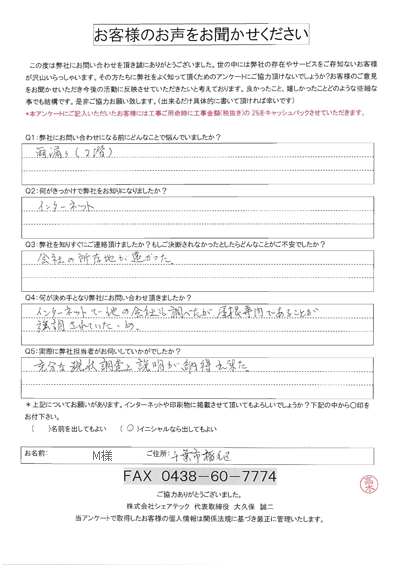 お客様のお声をお聞かせください
この度は弊社にお問い合わせを頂き誠にありがとうございました。世の中には弊社の存在やサービスをご存知ないお客様
が沢山いらっしゃいます。その方たちに弊社をよく知って頂くためのアンケートにご協力頂けないでしょうか?お客様のご意見
をお聞かせいただき今後の活動に反映させていただきたいと考えております。良かったこと、嬉しかったことどのような些細な
事でも結構です。是非ご協力お願い致します。(出来るだけ具体的に書いて頂ければ幸いです)
*本アンケートにご記入いただいたお客様には工事ご用命時に工事金額(税抜き)の2%をキャッシュバックさせていただきます。
Q1:弊社にお問い合わせになる前にどんなことで悩んでいましたか?
雨漏り(2階)
Q2:何がきっかけで弊社をお知りになりましたか?
インターネット
Q3:弊社を知りすぐにご連絡頂けましたか?もしご決断されなかったとしたらどんなことがご不安でしたか?
会社の所在地が遠かった。
Q4:何が決め手となり弊社にお問い合わせ頂きましたか?
インターネットで他の会社も調べたが、屋根専門であることが
強調されていた為。
Q5:実際に弊社担当者がお伺いしていかがでしたか?
充分な現状調査と説明が納得出来た。
*上記についてお願いがあります。インターネットや印刷物に掲載させて頂いてもよろしいでしょうか?下記の中から〇印を
お付け下さい。
( )名前を出してもよい (〇)イニシャルなら出してもよい
お名前: M様 ご住所: 千葉市稲毛区
FAX 0438-60-7774
ご協力ありがとうございました。
株式会社シェアテック 代表取締役 大久保 誠二
当アンケートで取得したお客様の個人情報は関係法規に基づき厳正に管理いたします。